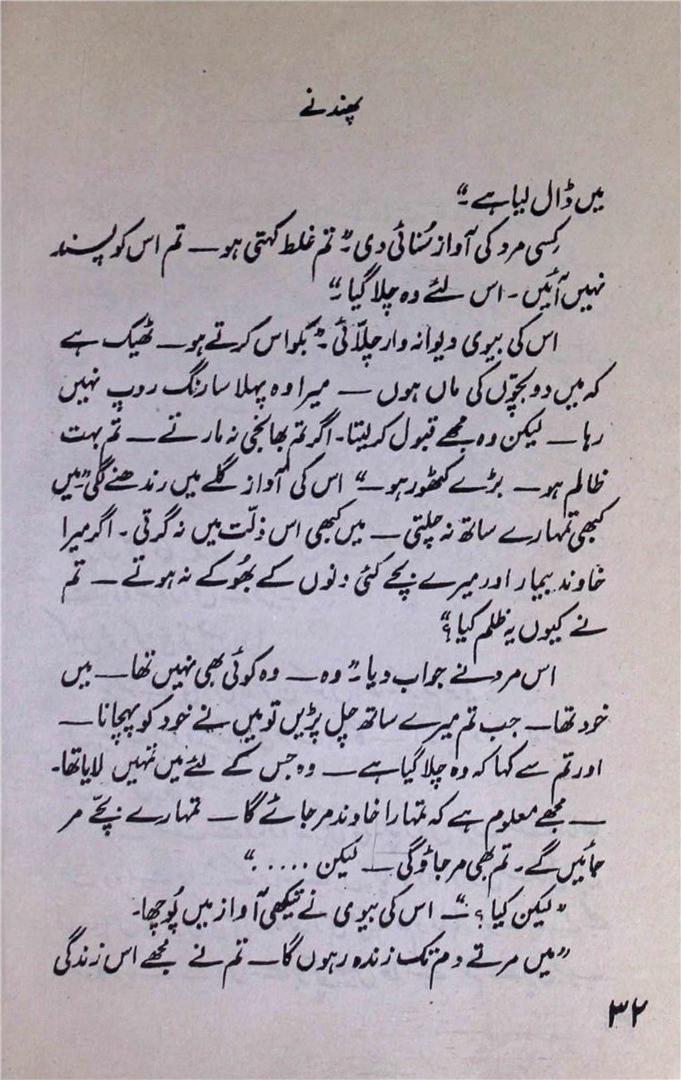 پھندنے
میں ڈال لیا ہے۔“
کسی مرد کی آواز سُنائی دی۔ ”تم غلط کہتی ہو — تم اس کو پسند
نہیں آئیں۔ اس لئے وہ چلا گیا۔“
اس کی بیوی دیوانہ وار چلّائی۔ ”بکواس کرتے ہو — ٹھیک ہے
کہ میں دو بچّوں کی ماں ہوں — میرا وہ پہلا سا رنگ روپ نہیں
رہا — لیکن وہ مجھے قبول کر لیتا۔ اگر تم بھانجی نہ مارتے — تم بہت
ظالم ہو — بڑے کٹھور ہو —“ اس کی آواز گلے میں رندھنے لگی۔ ”میں
کبھی تمہارے ساتھ نہ چلتی — میں کبھی اس ذلّت میں نہ گرتی۔ اگر میرا
خاوند بیمار اور میرے بچے کئی دنوں کے بھُوکے نہ ہوتے — تم
نے کیوں یہ ظلم کیا؟“
اس مرد نے جواب دیا۔ ”وہ — وہ کوئی بھی نہیں تھا — میں
خود تھا — جب تم میرے ساتھ چل پڑیں تو میں نے خود کو پہچانا —
اور تم سے کہا کہ وہ چلا گیا ہے — وہ جس کے لئے میں تمہیں لایا تھا۔
— مجھے معلوم ہے کہ تمہارا خاوند مر جائے گا — تمہارے بچّے مر
جائیں گے۔ تم بھی مر جاؤ گی — لیکن .....“
”لیکن کیا؟“ — اس کی بیوی نے تیکھی آواز میں پُوچھا۔
”میں مرتے دم تک زندہ رہوں گا — تم نے مجھے اس زندگی
۳۲